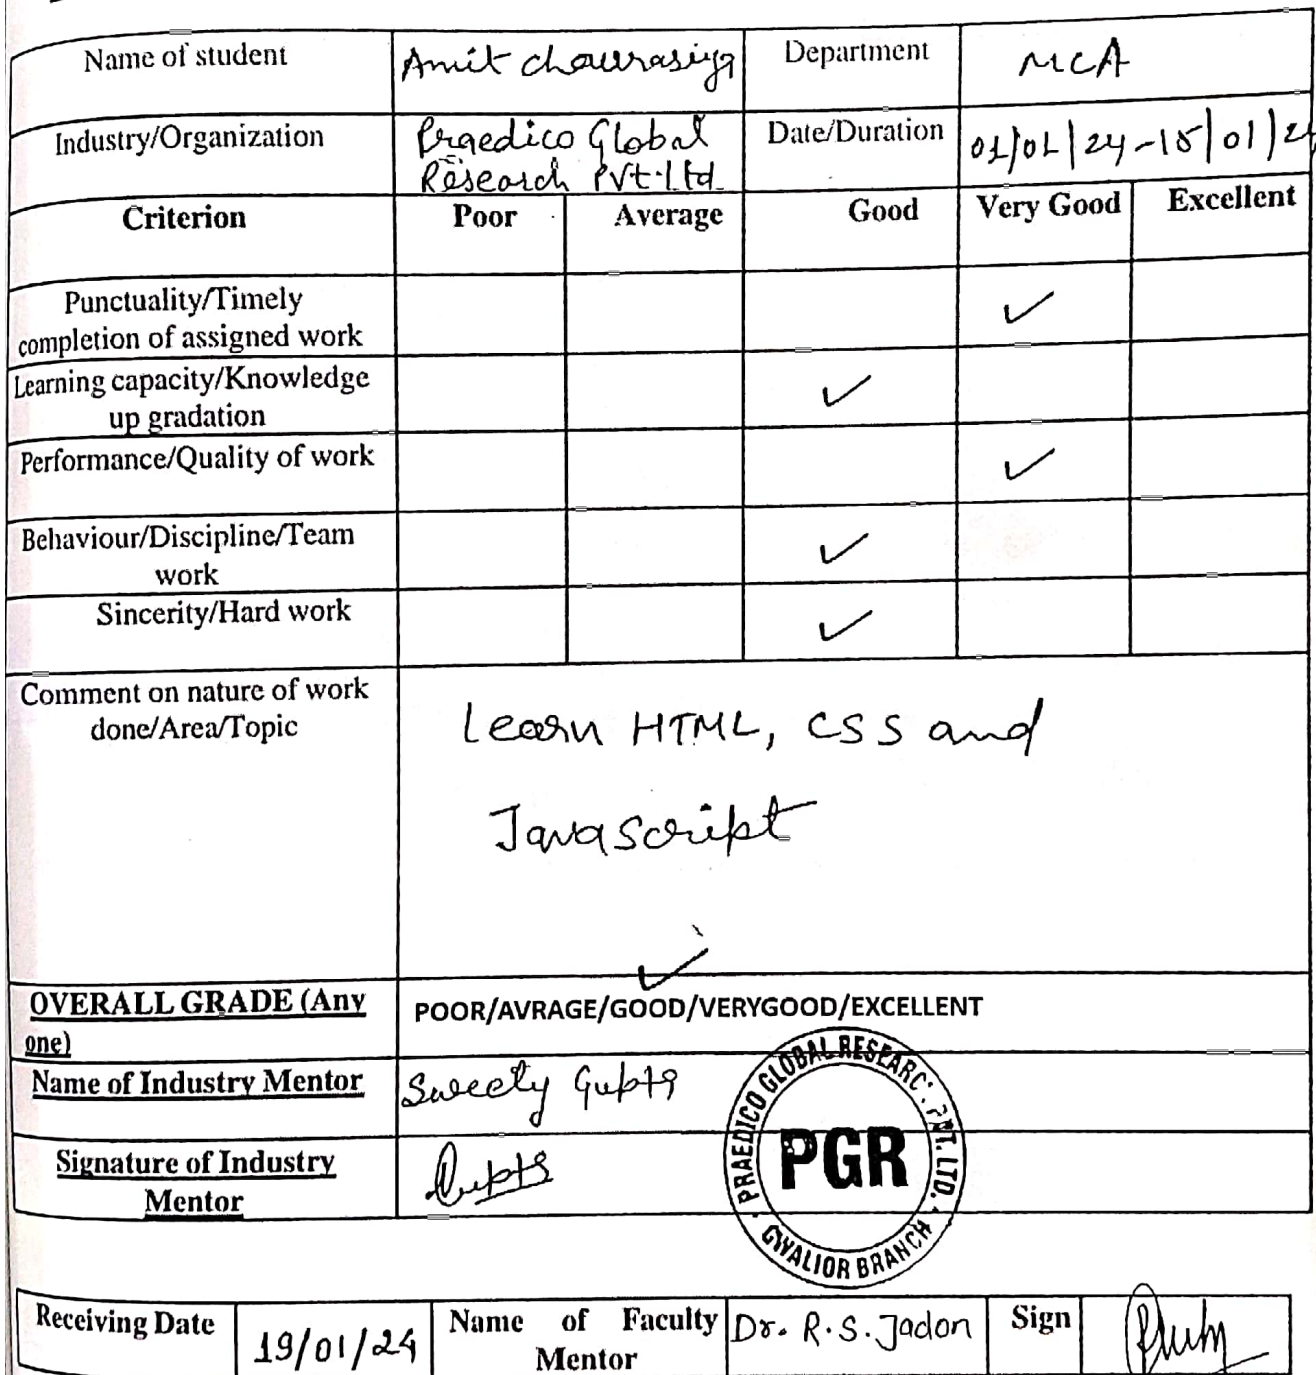 Name of student Amit chaurasiya Department MCA
Industry/Organization Praedico Global Date/Duration 01/01/24-15/01/24
Research Pvt. Ltd.
Criterion Poor Average Good Very Good Excellent
Punctuality/Timely ✓
completion of assigned work
Learning capacity/Knowledge ✓
up gradation
Performance/Quality of work ✓
Behaviour/Discipline/Team ✓
work
Sincerity/Hard work ✓
Comment on nature of work
done/Area/Topic
Learn HTML, CSS and
JavaScript
✓
OVERALL GRADE (Any
one)
POOR/AVRAGE/GOOD/VERYGOOD/EXCELLENT
Name of Industry Mentor Sweety Gupta
Signature of Industry
Mentor
Gupta
PRAEDICO GLOBAL RESEARC. PVT. LTD.
PGR
GWALIOR BRANCH
Receiving Date 19/01/24 Name of Faculty
Mentor
Dr. R.S. Jadon Sign